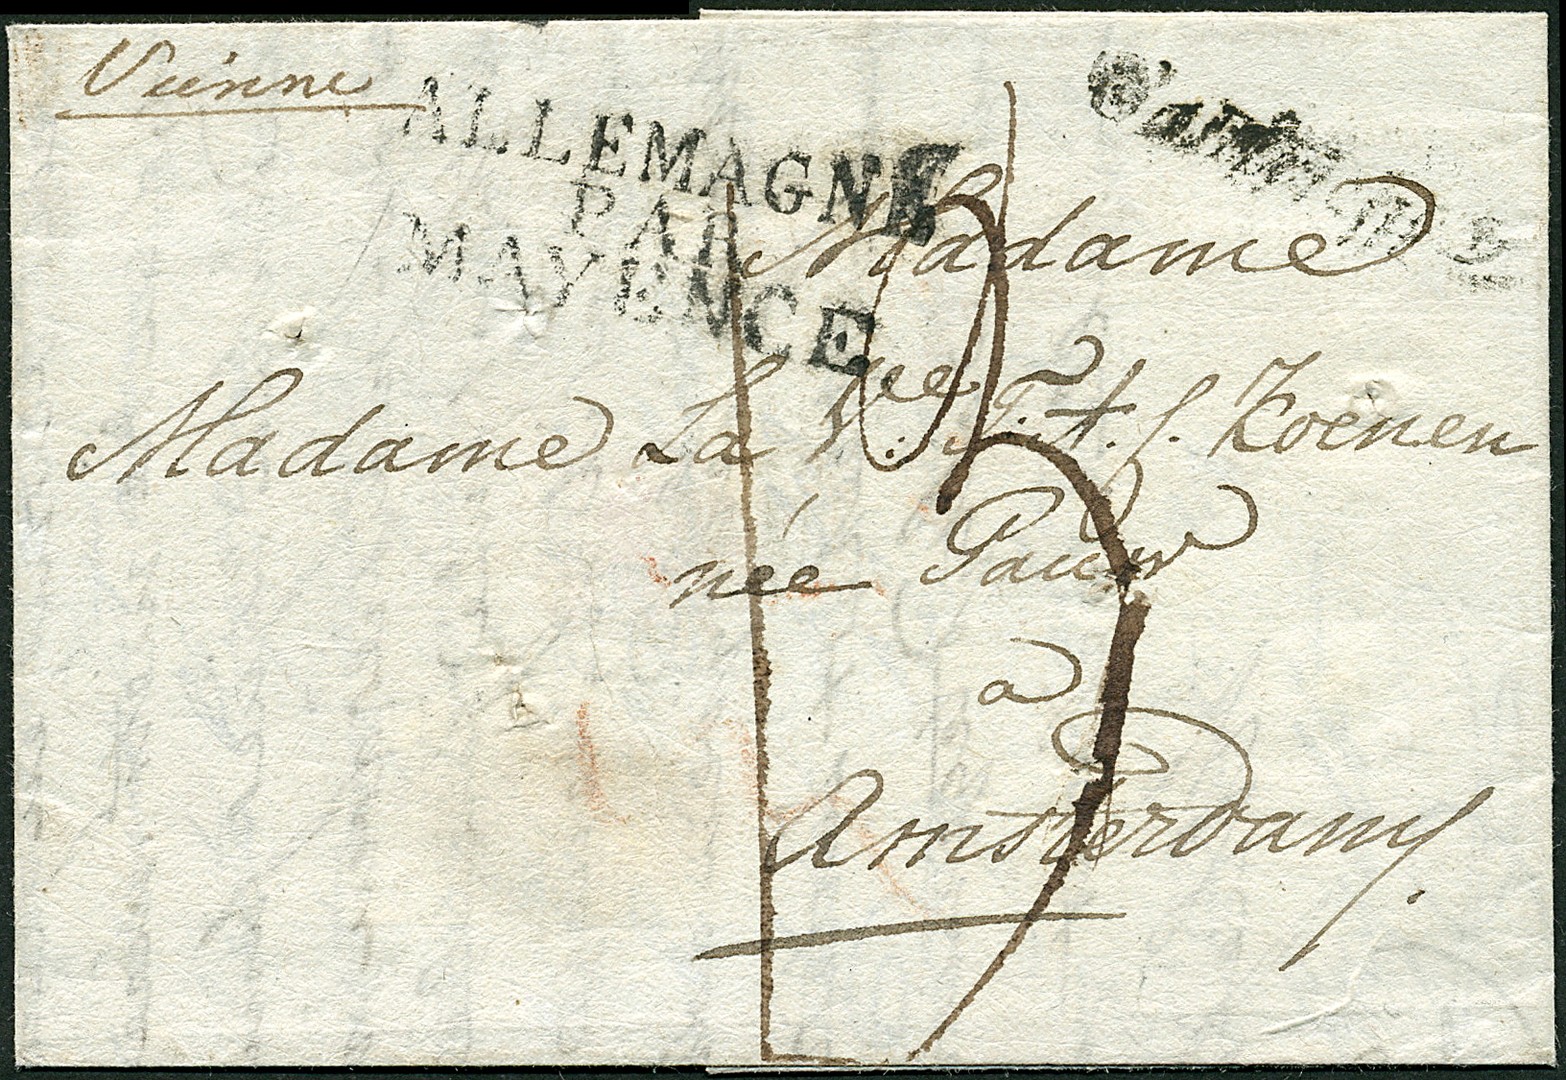 Vienne
ALLEMAGNE
PAR
MAYENCE
Madame
Madame La Vve. T. A. J. Koenen
née Pauw
à
Amsterdam